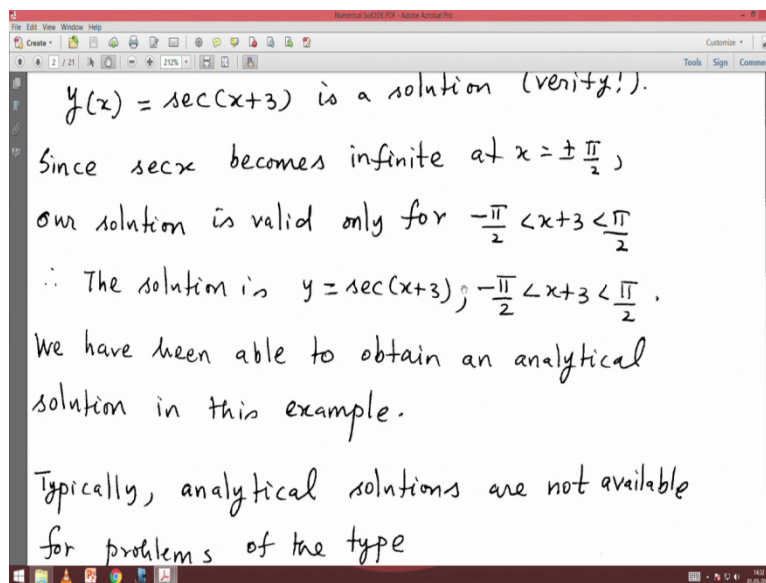 Numerical SolODE.PDF - Adobe Acrobat Pro
File Edit View Window Help
Create Customize
2 / 21 212% Tools Sign Comme
y(x) = sec(x+3) is a solution (verify!).
Since secx becomes infinite at x = ± π/2 ,
our solution is valid only for -π/2 < x+3 < π/2
∴ The solution is y = sec(x+3); -π/2 < x+3 < π/2 .
We have been able to obtain an analytical
solution in this example.
Typically, analytical solutions are not available
for problems of the type
14:32